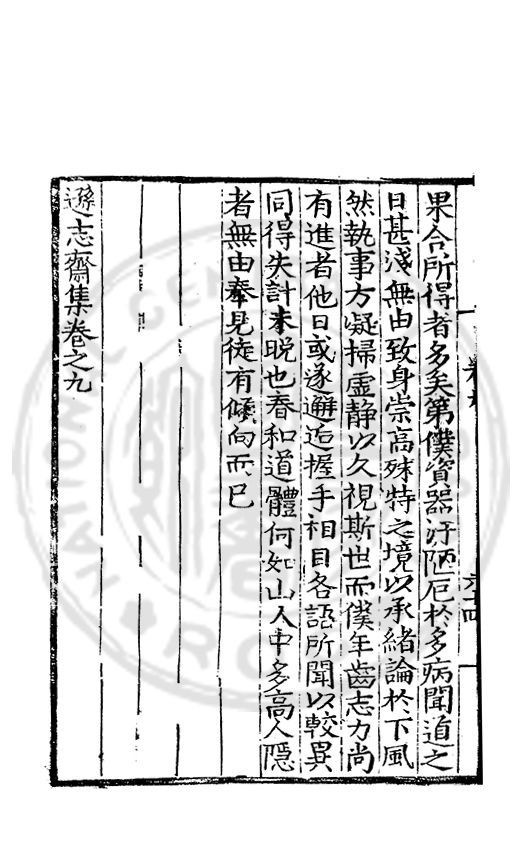 果合所得者多矣第僕資器汙陋厄於多病聞道之
日甚淺無由致身崇高殊特之境以承緒論於下風
然執事方凝掃虛静以久視斯世而僕年齒志力尚
有進者他日或遂邂逅握手相目各語所聞以較異
同得失計未晚也春和道體何如山人中多高人隱
者無由奉見徒有傾向而已
遜志齋集卷之九